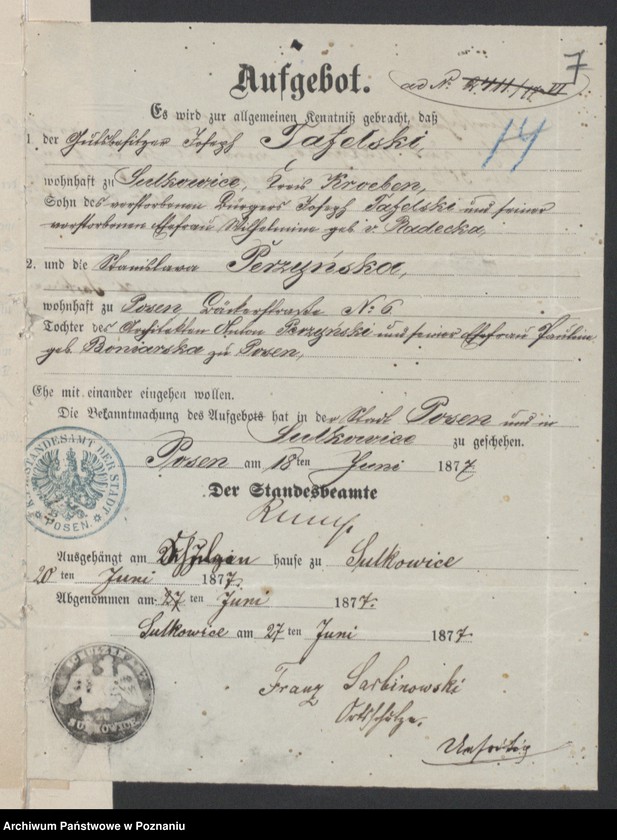 7
Aufgebot.
ad No
14
Es wird zur allgemeinen Kenntniß gebracht, daß
1. der Gutsbesitzer Joseph Tafelski,
wohnhaft zu Sulkowice, Kreis Kroeben,
Sohn des verstorbenen Bürgers Joseph Tafelski und seiner
verstorbenen Ehefrau Wilhelmine geb v. Radecka,
2. und die Stanislava Perzyńska,
wohnhaft zu Posen, Bäckerstraße No 6
Tochter des Architekten Anton Perzyński und seiner Ehefrau Pauline
geb. Boniarska zu Posen,
Ehe mit einander eingehen wollen.
Die Bekanntmachung des Aufgebots hat in der Stadt Posen und in
Sulkowice zu geschehen.
Posen am 18ten Juni 1877
Der Standesbeamte
K. STANDESAMT DER STADT POSEN.
Ausgehängt am Schulzen hause zu Sulkowice
20 ten Juni 1877.
Abgenommen am 27 ten Juni 1877.
Sulkowice am 27 ten Juni 1877.
SULKOWICE
Franz Sarbinowski
Ortsschulze.
Archiwum Państwowe w Poznaniu